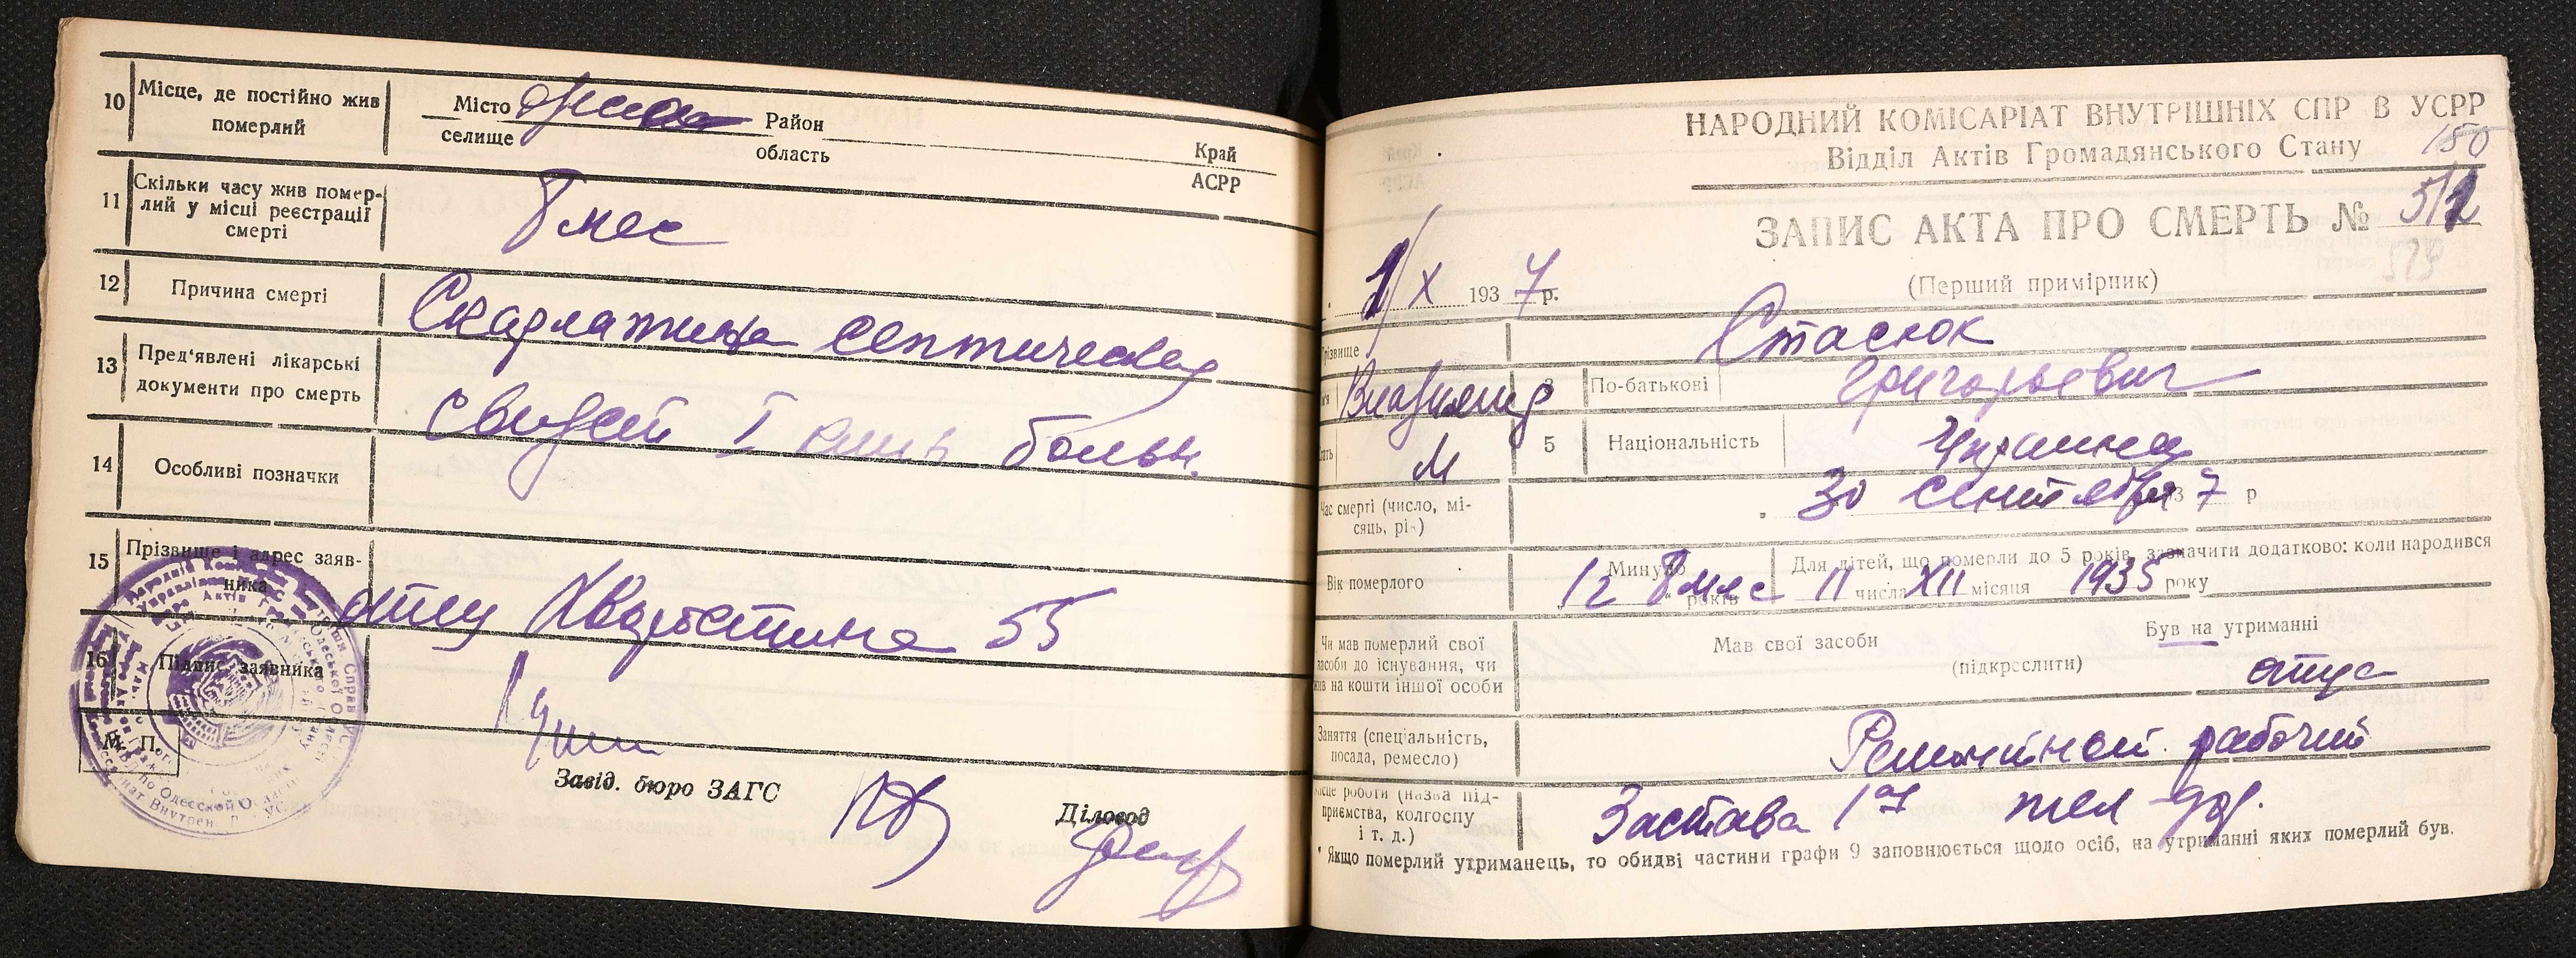 10 Місце, де постійно жив померлий
Місто селище Район область Край АСРР
11 Скільки часу жив помер-
лий у місці реєстрації
смерті
8 мес
12 Причина смерті
Скарлатина септическая
13 Пред'явлені лікарські
документи про смерть
I больн.
14 Особливі позначки
15 Прізвище і адрес заяв-
ника
отец 55
16 Підпис заявника
М. П.
Завід. бюро ЗАГС
Діловод
НАРОДНИЙ КОМІСАРІАТ ВНУТРІШНІХ СПР В УСРР
150
Відділ Актів Громадянського Стану
ЗАПИС АКТА ПРО СМЕРТЬ №
1/X 1937 р.
(Перший примірник)
різвище Стасюк
Владимир
3 По-батькові Григорьевич
М
5 Національність
Час смерті (число, мі-
сяць, рік)
30 сентября 1937 р
Вік померлого
Минуло 1 г 8 мес років
Для дітей, що померли до 5 років, зазначити додатково: коли народився
11 числа XII місяця 1935 року
Чи мав померлий свої
засоби до існування, чи
жив на кошти іншої особи
Мав свої засоби
(підкреслити)
Був на утриманні
отца
Заняття (спеціальність,
посада, ремесло)
Ремонтной рабочий
місце роботи (назва під-
приємства, колгоспу
і т. д.)
Застава 1ая жел-дор.
* Якщо померлий утриманець, то обидві частини графи 9 заповнюється щодо осіб, на утриманні яких померлий був.